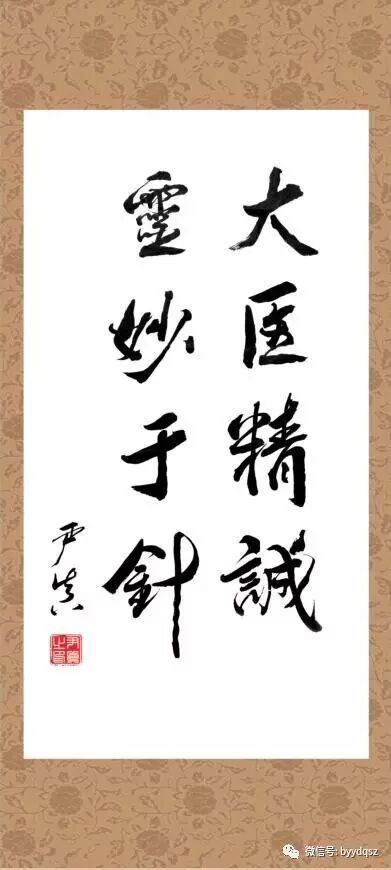 大医精誠
靈妙于針
微信号: byydqsz